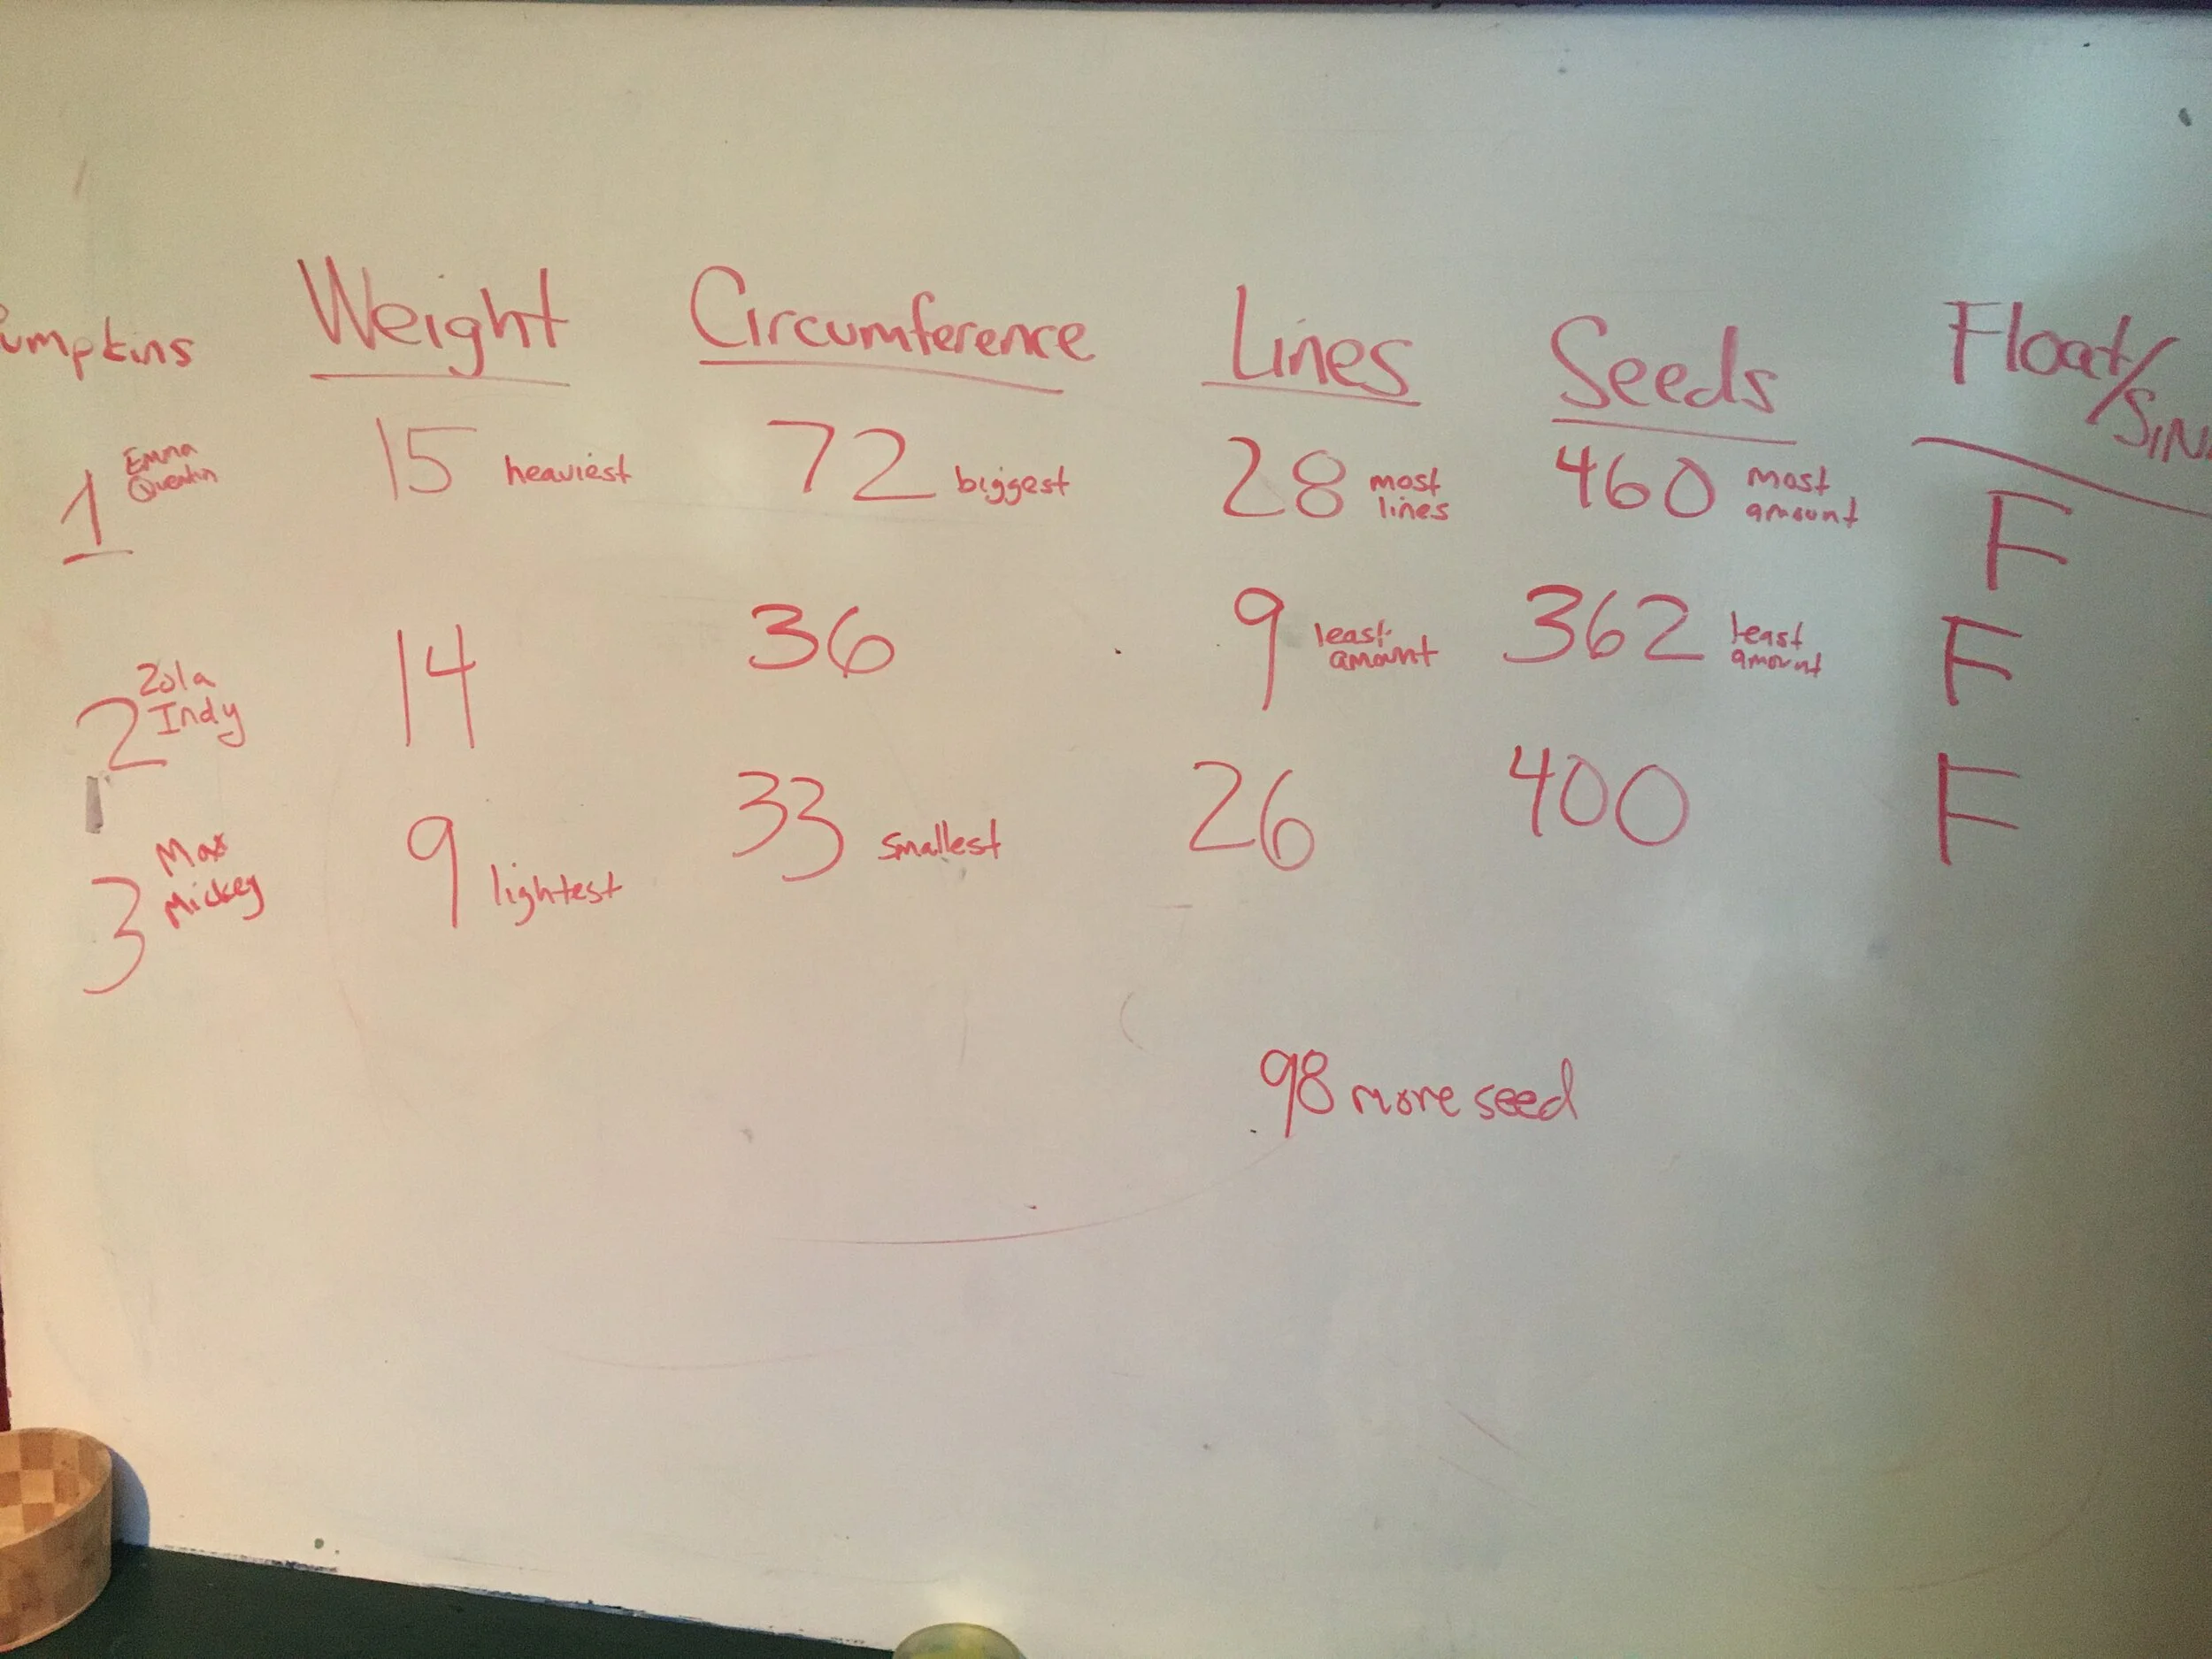 umpkins Weight Circumference Lines Seeds Float/Sin
1 Emma Quentin 15 heaviest 72 biggest 28 most lines 460 most amount F
2 Zola Indy 14 36 9 least amount 362 least amount F
3 Max Mickey 9 lightest 33 smallest 26 400 F
98 more seed